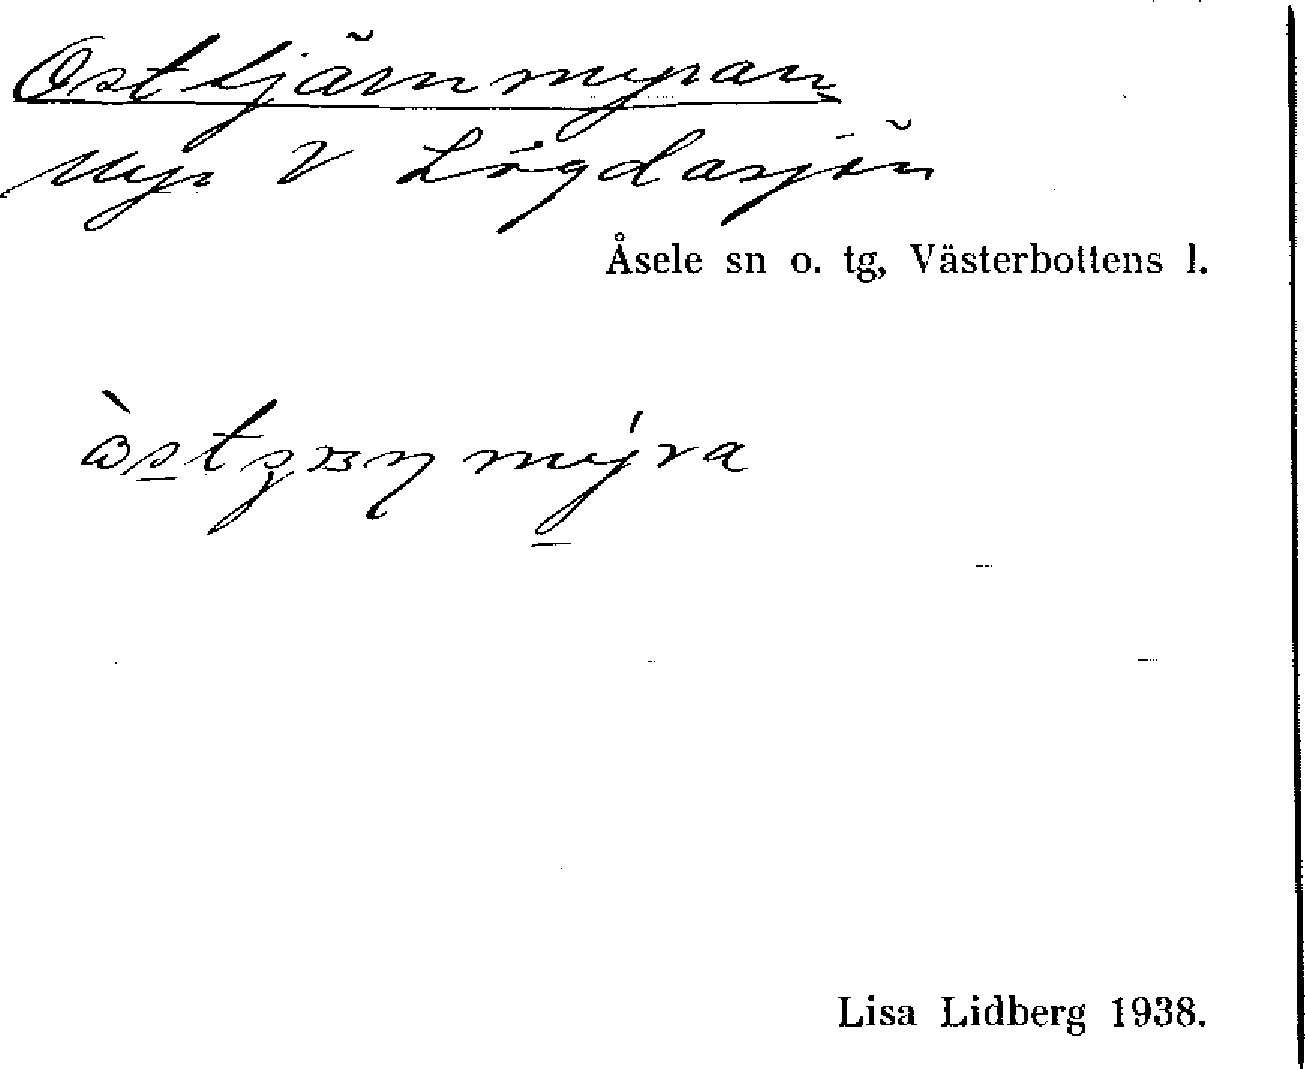 Osttjärnmyran
Myr V Lögdasjön
Åsele sn o. tg, Västerbottens l.
Lisa Lidberg 1938.